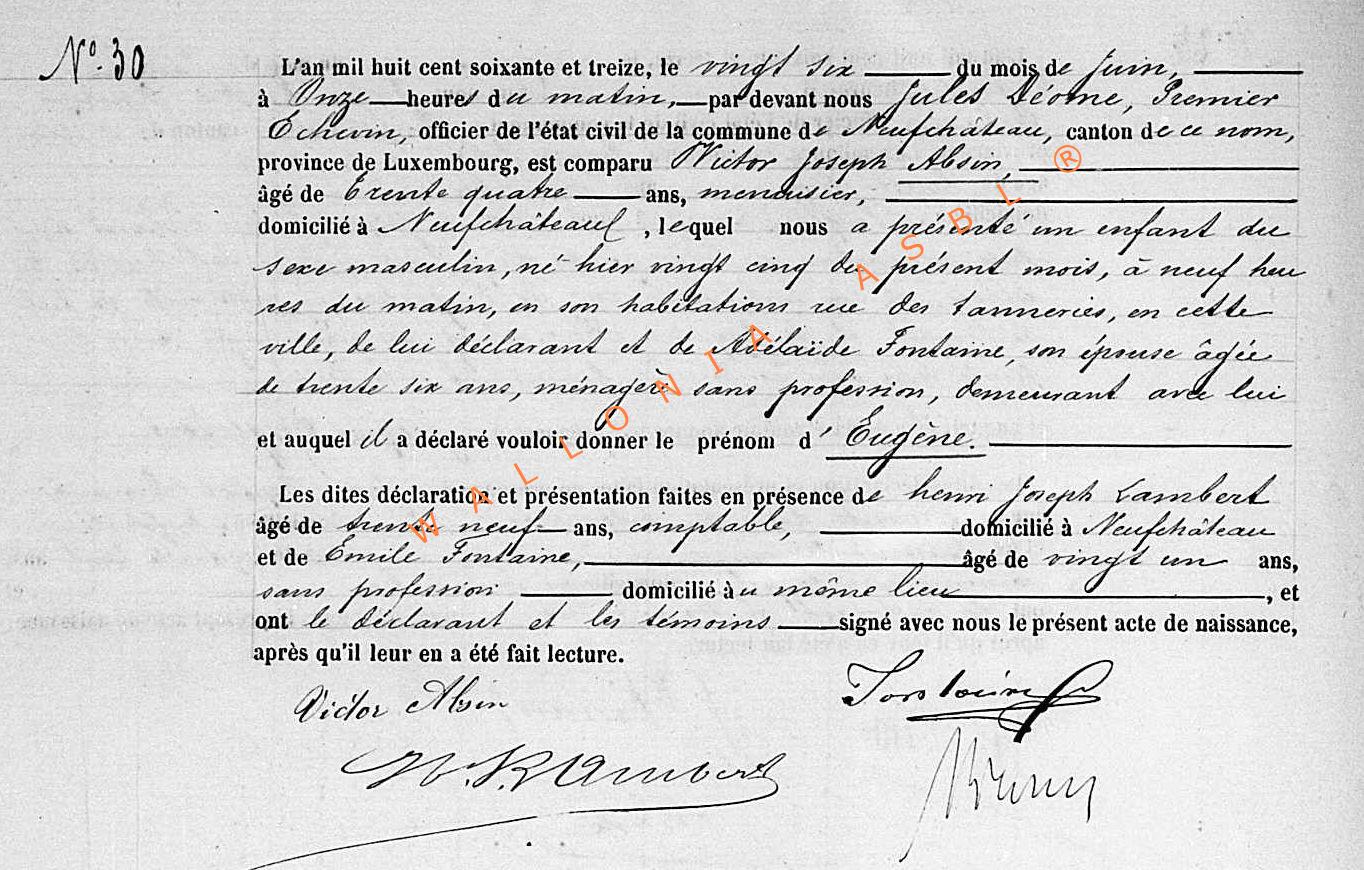 N° 30
L'an mil huit cent soixante et treize, le vingt six du mois de Juin,
à Onze heures du matin, par devant nous Jules Déome, Premier
Echevin, officier de l'état civil de la commune de Neufchâteau, canton de ce nom,
province de Luxembourg, est comparu Victor Joseph Absin,
âgé de trente quatre ans, menuisier,
domicilié à Neufchâteau, lequel nous a présenté un enfant du
sexe masculin, né hier vingt cinq du présent mois, à neuf heu
res du matin, en son habitation rue des tanneries, en cette
ville, de lui déclarant et de Adélaïde Fontaine, son épouse âgée
de trente six ans, ménagère sans profession, demeurant avec lui
et auquel il a déclaré vouloir donner le prénom d' Eugène.
Les dites déclaration et présentation faites en présence de henri Joseph Lambert
âgé de trente neuf ans, comptable, domicilié à Neufchâteau
et de Emile Fontaine, âgé de vingt un ans,
sans profession domicilié au même lieu, et
ont le déclarant et les témoins signé avec nous le présent acte de naissance,
après qu'il leur en a été fait lecture.
Victor Absin Fontaine
H. J. Lambert
WALLONIA ASBL ®